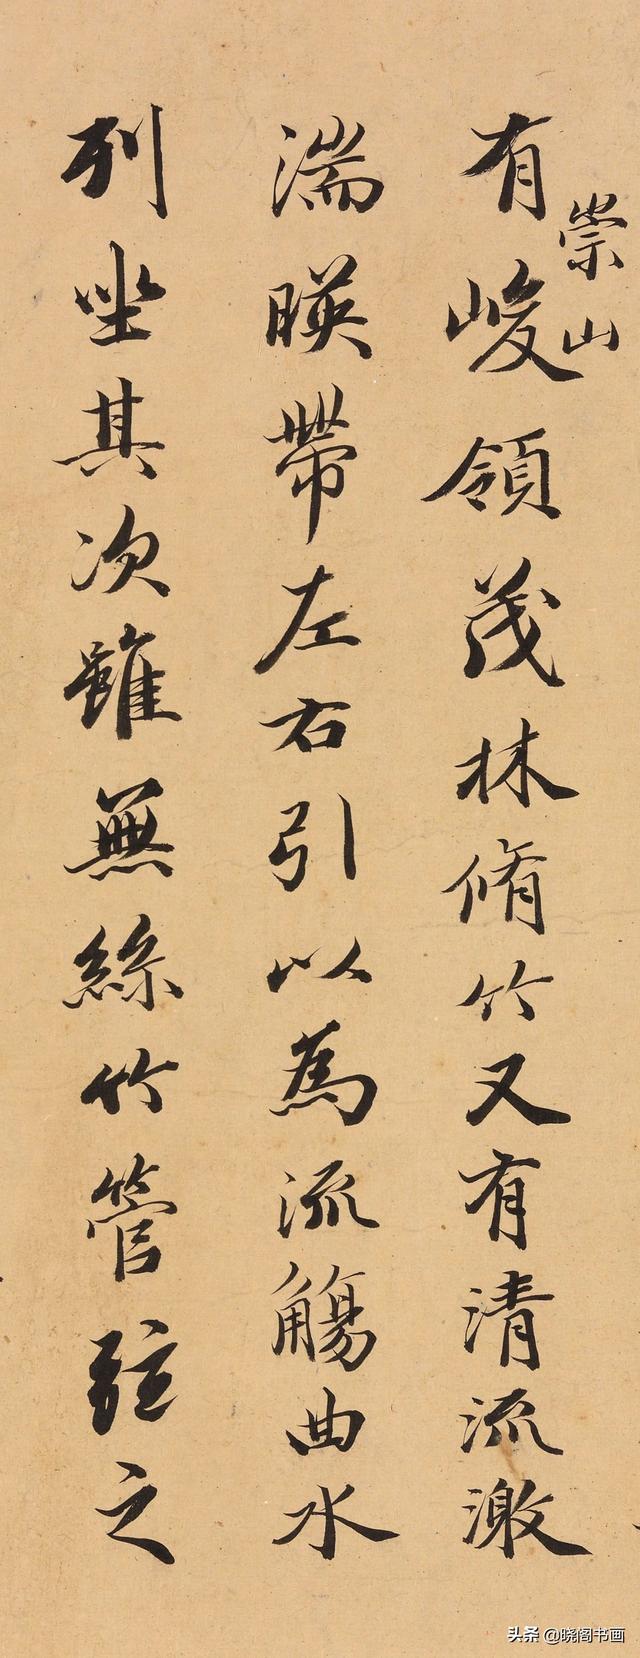 有崇山峻領茂林脩竹又有清流激
湍暎帶左右引以為流觴曲水
列坐其次雖無絲竹管弦之
头条 @晓阁书画